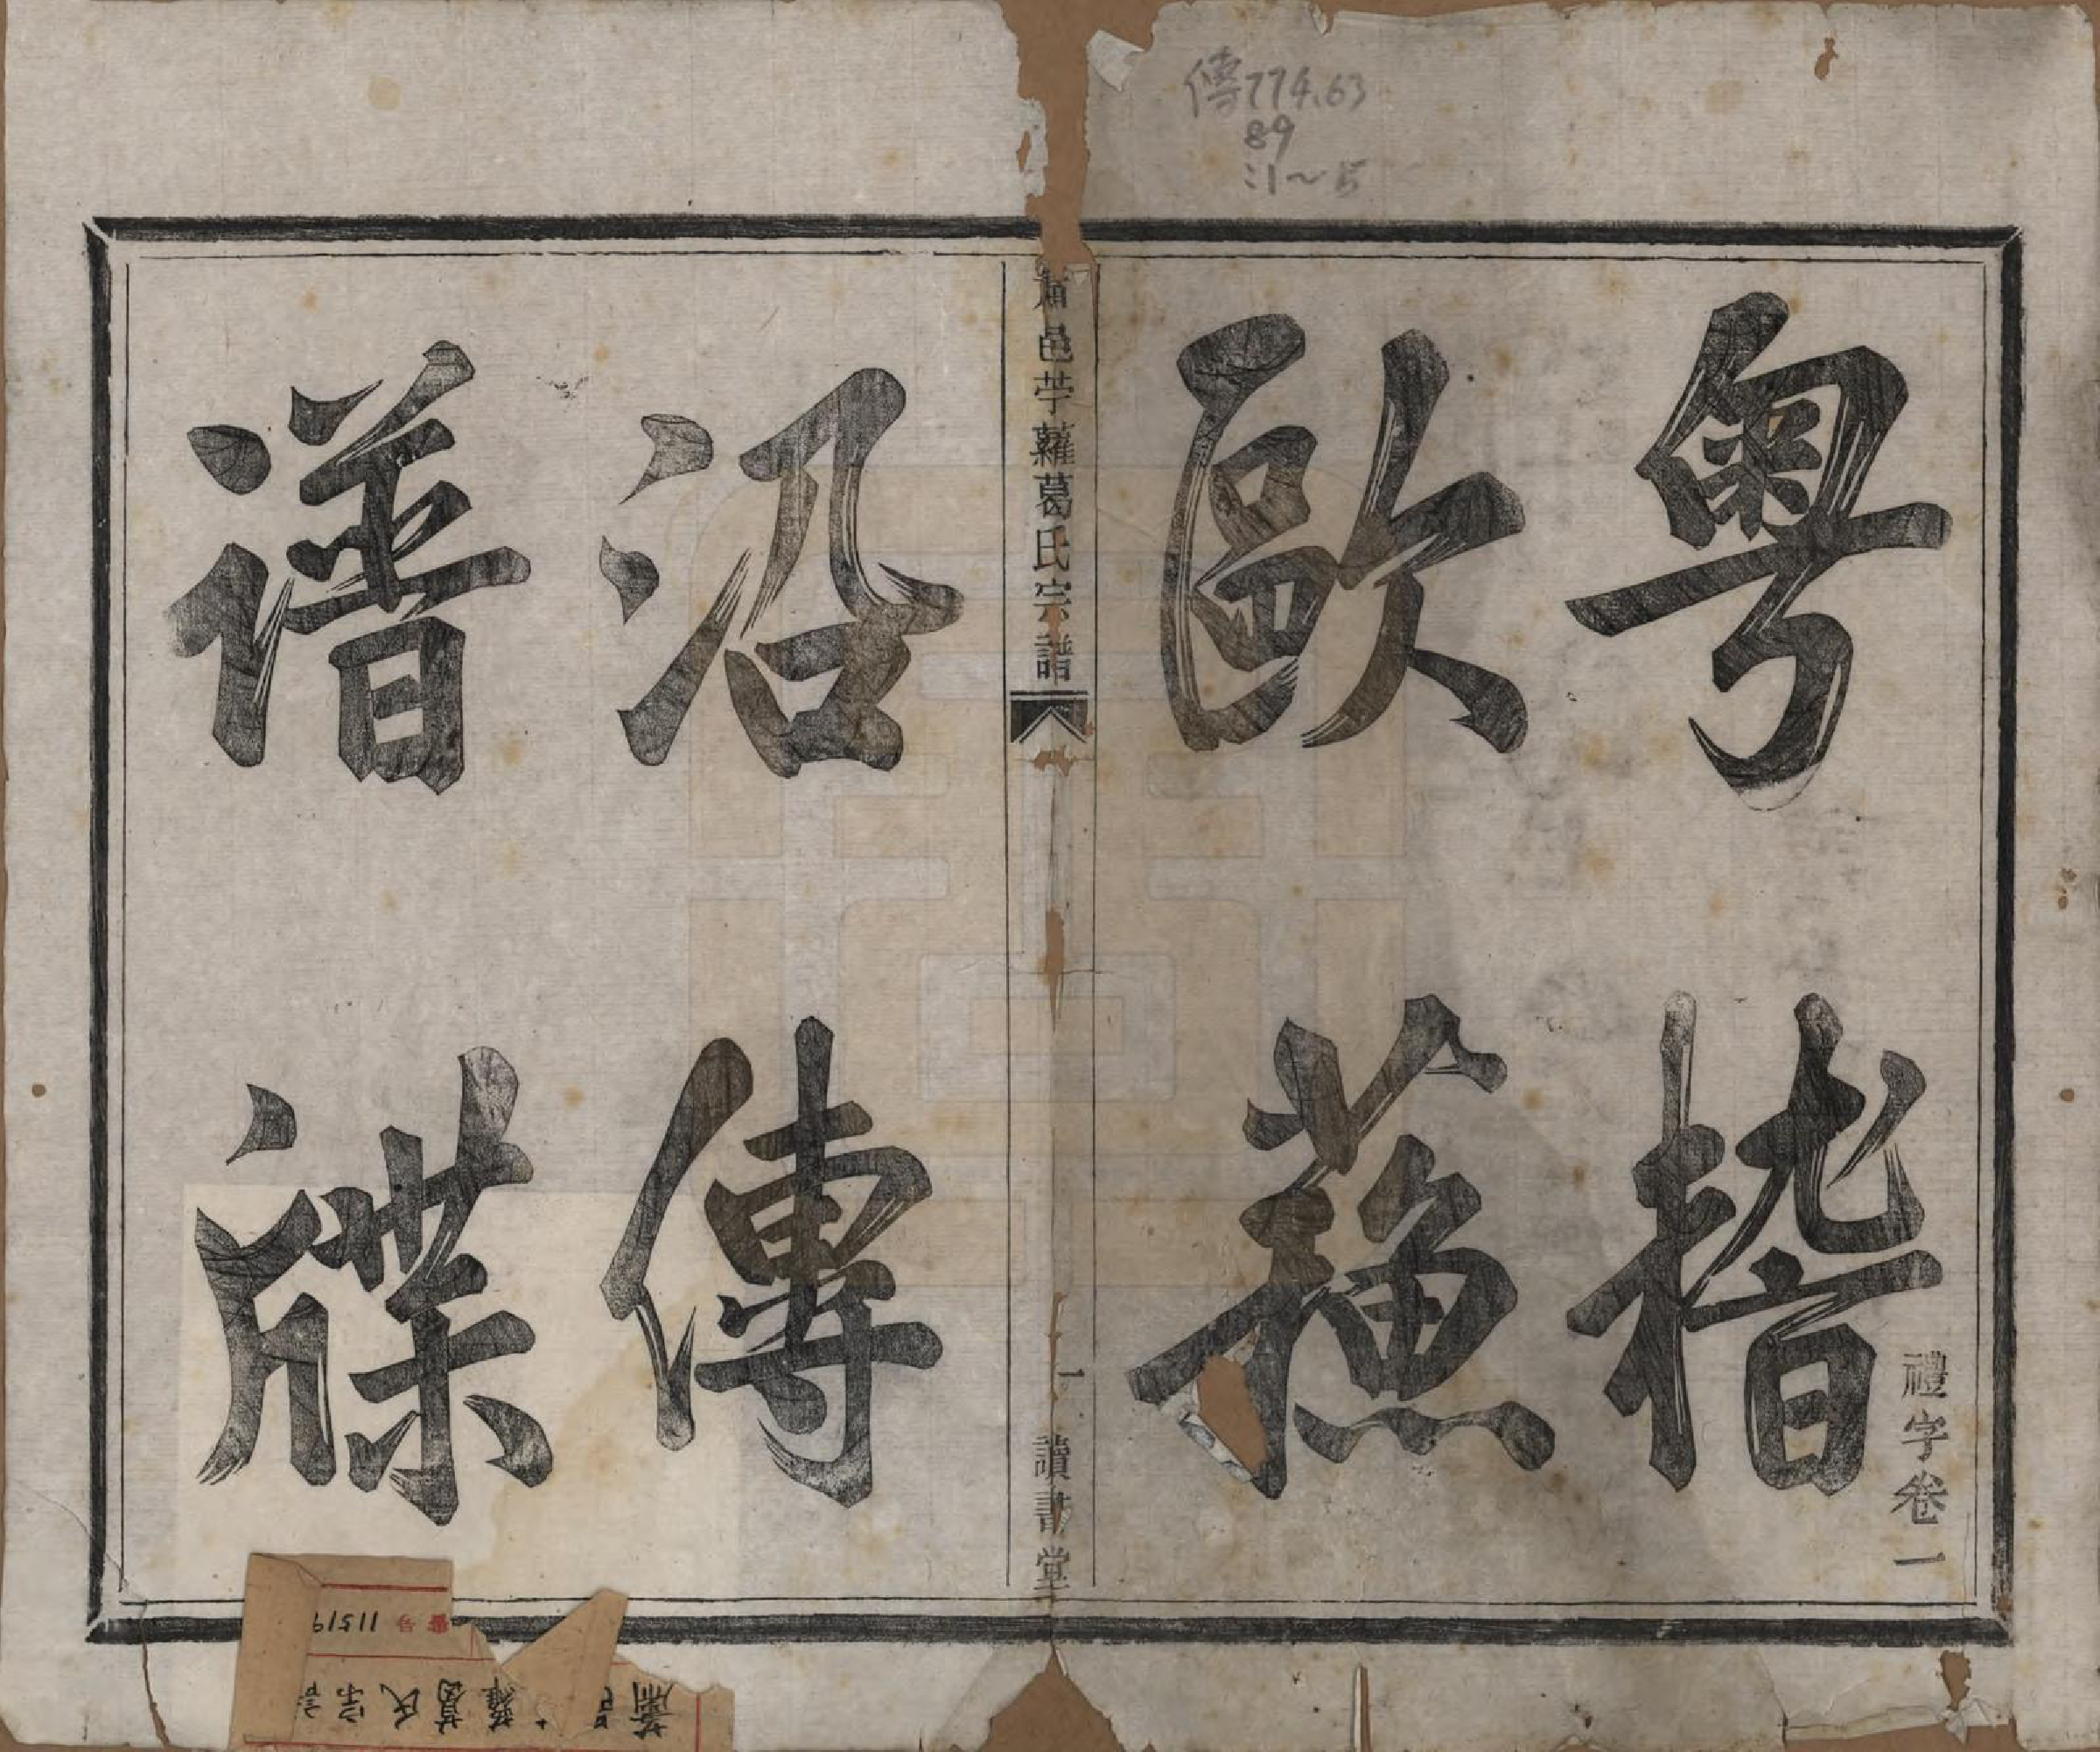 傳774.63
89
:1~15
粤稽
歐蘓
禮字卷一
蕭邑苧蘿葛氏宗譜
一
讀書堂
沿傳
譜牒
番号 11519
蕭邑 蘿葛氏宗譜